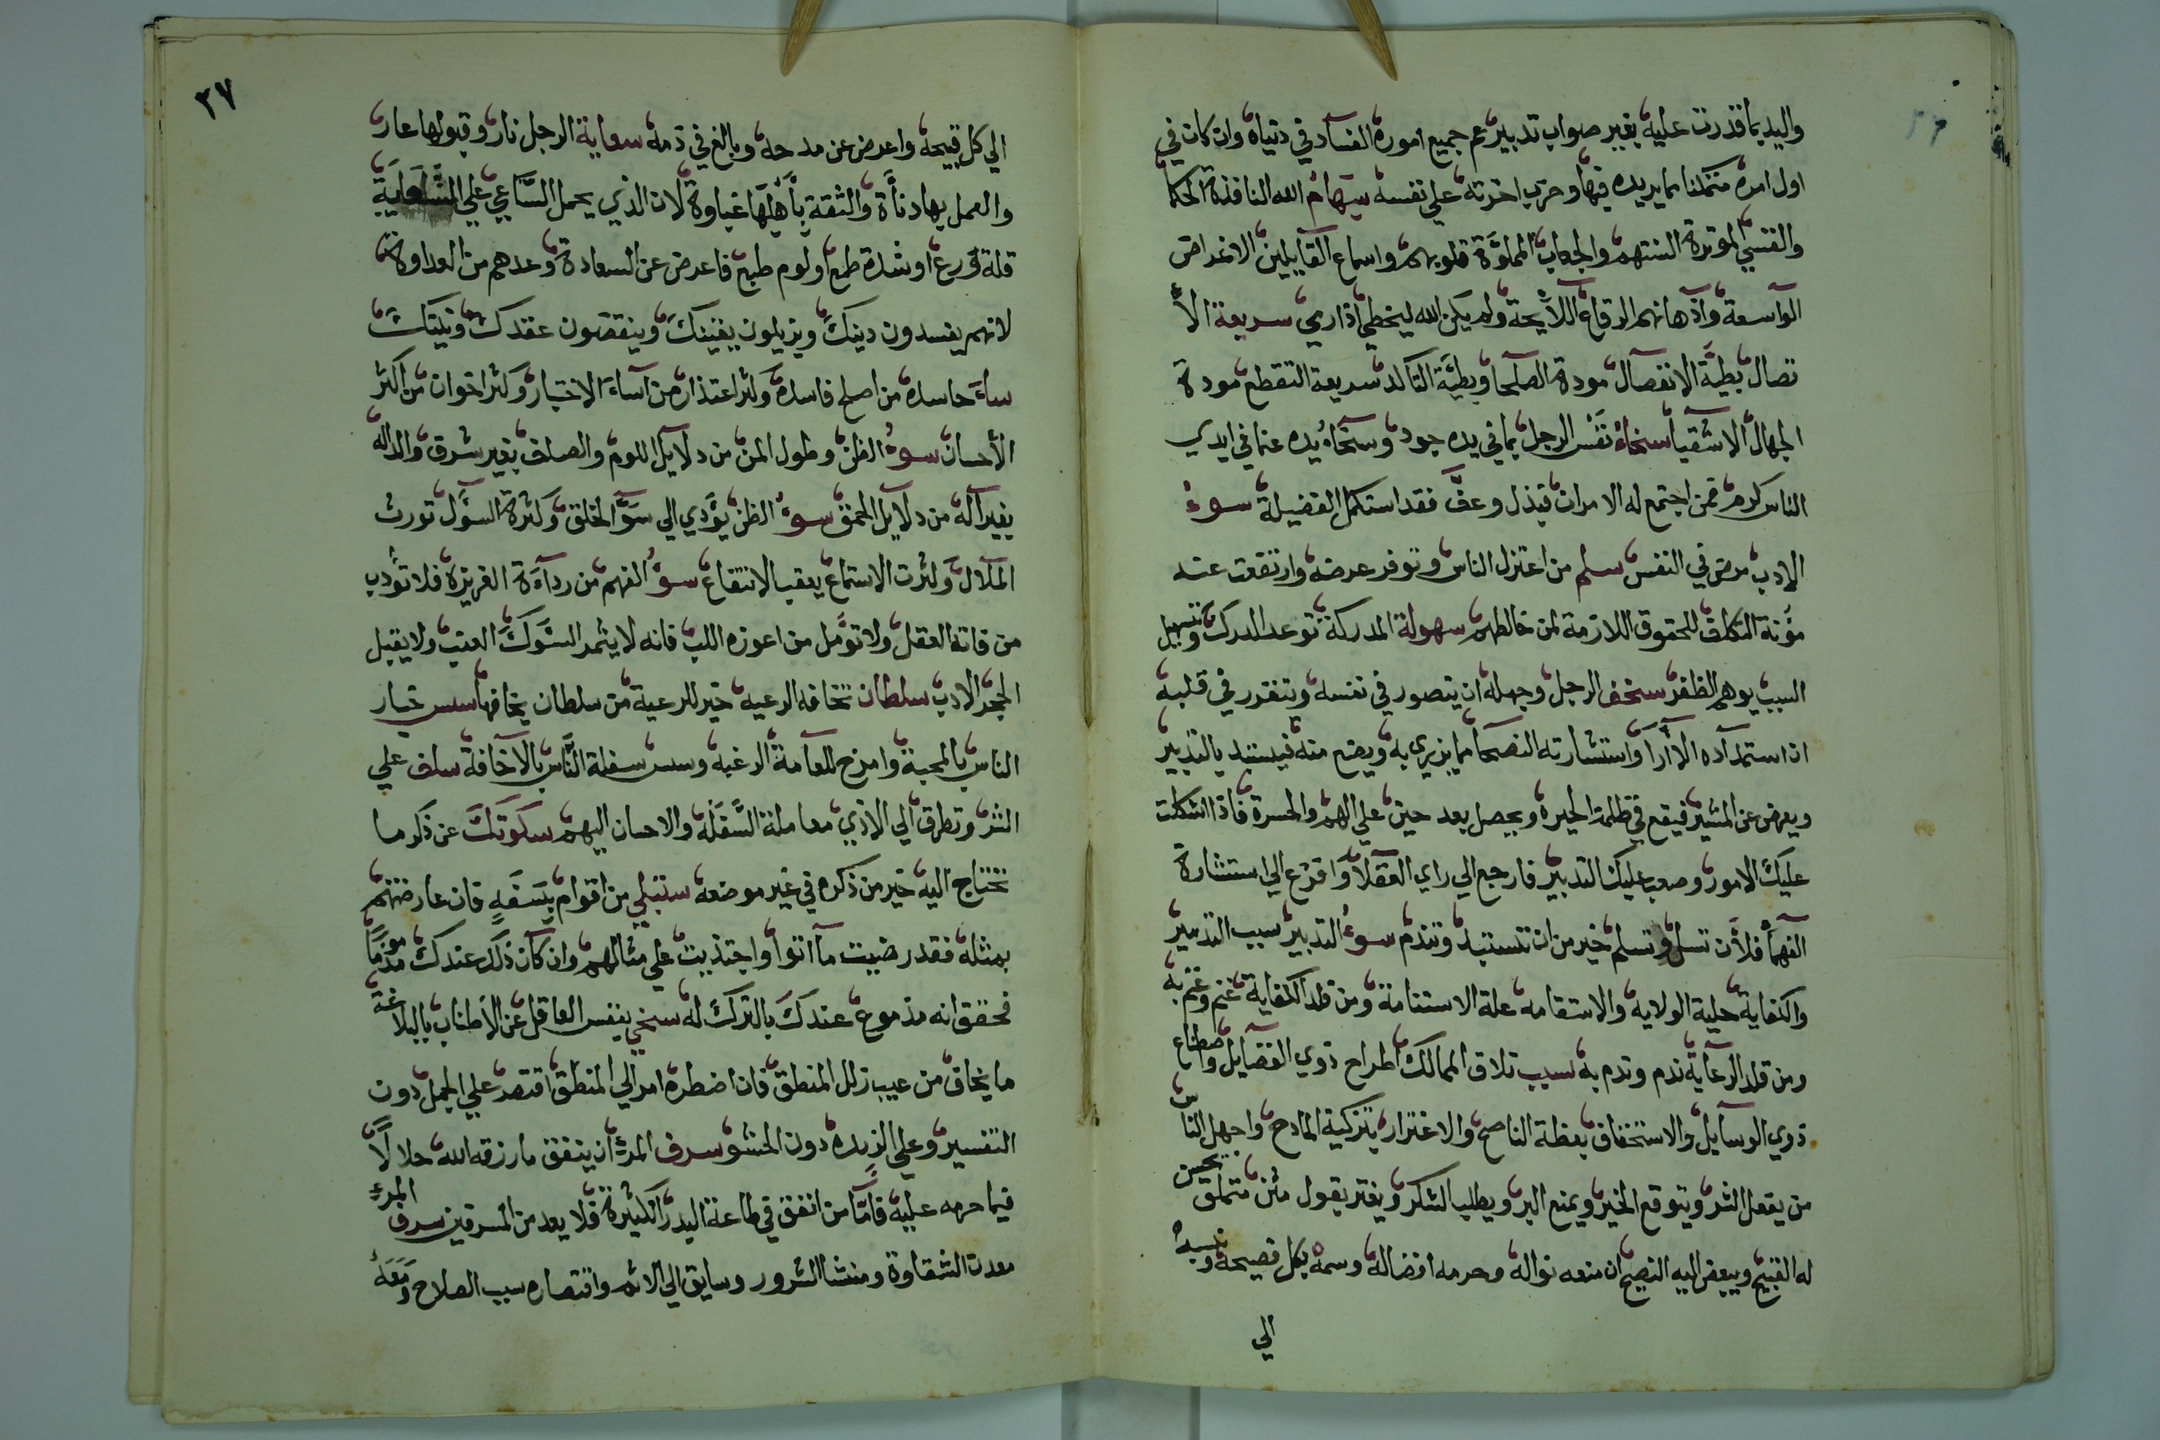 واليد بما قدرت عليه بغير صواب تدبير عم جميع اموره الفساد في دنياه وان كان في
اول امره متمكنا مما يريده فيها وحرب اخرته علي نفسه سهام الله النافذة الحكما
والقسي الموترة السنتهم والجعاب المملوة قلوبهم واسماع القابلين الاغراض
الواسعة واذهانهم الرقاع اللايحة ولم يكن الله ليخطي اذا رمي سريعة الا
تصال بطية الانفصال مودة الصلحا وبطية التاكد سريعة التقطع مودة
الجهال الاشقيا سخاء نفس الرجل بما في يده جود وسخاء يده عما في ايدي
الناس كرم فمن اجتمع له الامران فبذل وعف فقد استكمل الفضيلة سوء
الادب مرض في النفس سلم من اعتزل الناس وتوفر عرضه وارتفعت عنه
مؤنة التكلف للحقوق اللازمة لمن خالطهم سهولة المدركة توعد الدرك وتسهيل
السبب يوهم الظفر سخف الرجل وجهله ان يتصور في نفسه ويتقرر في قلبه
ان استمداده الاراء واستشارته النصحا مما يزري به ويضع منه فيستبد بالتدبير
ويعرض عن المشير فيقع في ظلمة الحيره ويحصل بعد حين علي الهم والحسرة فاذا اشكلت
عليك الامور وصعب عليك التدبير فارجع الي راي العقلا وافزع الي استشارة
الفهما فلان تسل وتسلم خير من ان تستبد وتندم سوء التدبير سبب التدمير
والكفاية حلية الولايه والاستقامه علة الاستنامة ومن قلد الكفاية غنم وغنم به
ومن قلد الرعاية ندم وندم به سبب تلاق الممالك اطراح ذوي الفضايل واصطناع
ذوي الوسايل والاستخفاف بعظة الناصح والاغترار بتزكية المادح واجهل الناس
من يفعل الشر ويتوقع الخير ويمنع البر ويطلب الشكر ويغتر بقول مئن متملق يحسن
له القبيح ويبغض اليه النصيح ان منعه نواله وحرمه افضاله وسمه بكل فضيحة ونسبه
الي
٢٧
الي كل قبيحة واعرض عن مدحه وبالغ في ذمه سعاية الرجل نار وقبولها عار
والعمل بها دنأة والثقة بأهلها غباوة لان الذي يحمل الساعي علي السعاية
قلة ورع او شدة طمع او لوم طبع فاعرض عن السعادة وعدهم من العداوة
لانهم يفسدون دينك ويزيلون يقينك وينقضون عقدك ونيتك
ساء حاسده من اصلح فاسده وكثر اعتذار من اساء الاختيار وكثر اخوان من اكثر
الأحسان سوء الظن وطول المن من دلايل اللوم والصلف بغير شرف والدالة
بغير آلة من دلايل الحمق سوء الظن يؤدي الي سوء الخلق وكثرة السؤل تورث
الملال وكثرت الاستماع يعقب الانتفاع سوء الفهم من رداءة الغريزة فلا تؤدب
من فاته العقل ولا تؤمل من اعوزه اللب فانه لا يثمر الشوك العنب ولا يقبل
الحجر الادب سلطان تخافه الرعيه خير للرعية من سلطان يخافها سس خيار
الناس بالمحبة وامزج للعامة الرغبه وسس سفلة الناس بالاخافة سلف علي
الشر وتطرق الي الاذي معاملة السفلة والاحسان اليهم سكوتك عن ذكر ما
تحتاج اليه خير من ذكره في غير موضعه ستبتلي من اقوام بسفه فان عارضتهم
بمثله فقد رضيت ما اتوا واحتذيت علي مثالهم وان كان ذلك عندك مذموما
فحقق انه مذموم عندك بالترك له سخي بنفس العاقل عن الأطناب بالبلاغة
ما يخاف من عيب زلل المنطق فان اضطره امر الي المنطق اقتصر علي الجمل دون
التفسير وعلي الزبده دون الحشو سرف المرء ان ينفق ما رزقه الله حلالا
فيما حرمه عليه فاما من انفق في طاعة البدر الكثيرة فلا يعد من المسرفين سرف المرء
معدن الشقاوة ومنشا الشرور وسايق الي الاثم واقتصاره سبب الصلاح